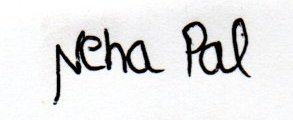 Neha Pal